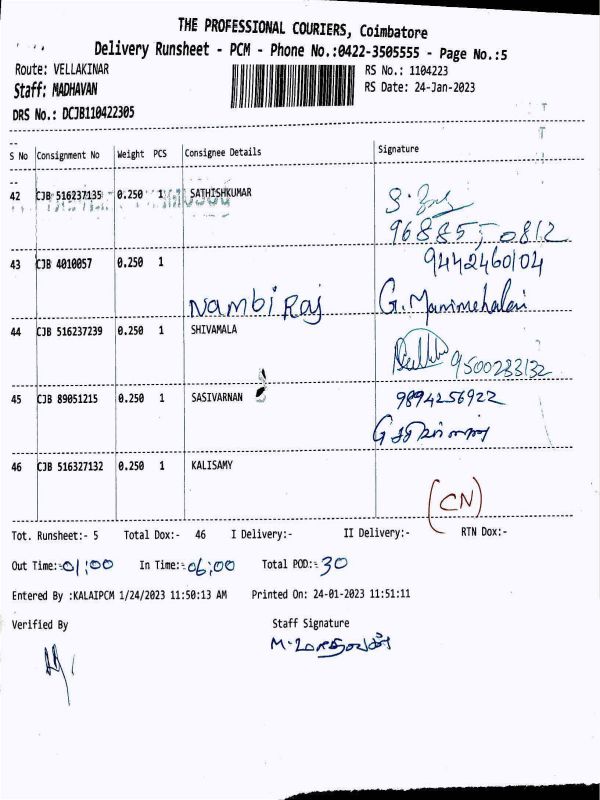 THE PROFESSIONAL COURIERS, Coimbatore
Delivery Runsheet - PCM - Phone No.:0422-3505555 - Page No.:5
Route: VELLAKINAR RS No.: 1104223
Staff: MADHAVAN RS Date: 24-Jan-2023
DRS No.: DCJB110422305
S No Consignment No Weight PCS Consignee Details Signature
42 CJB 516237135 0.250 1 SATHISHKUMAR
96885,-0812
43 CJB 4010057 0.250 1 9442460104
Nambi Raj G. Manimehalai
44 CJB 516237239 0.250 1 SHIVAMALA
9500233132
45 CJB 89051215 0.250 1 SASIVARNAN 9894256922
46 CJB 516327132 0.250 1 KALISAMY
(CN)
Tot. Runsheet:- 5 Total Dox:- 46 I Delivery:- II Delivery:- RTN Dox:-
Out Time:-01:00 In Time:-06:00 Total POD:-30
Entered By :KALAIPCM 1/24/2023 11:50:13 AM Printed On: 24-01-2023 11:51:11
Verified By Staff Signature
M. மாதவன்